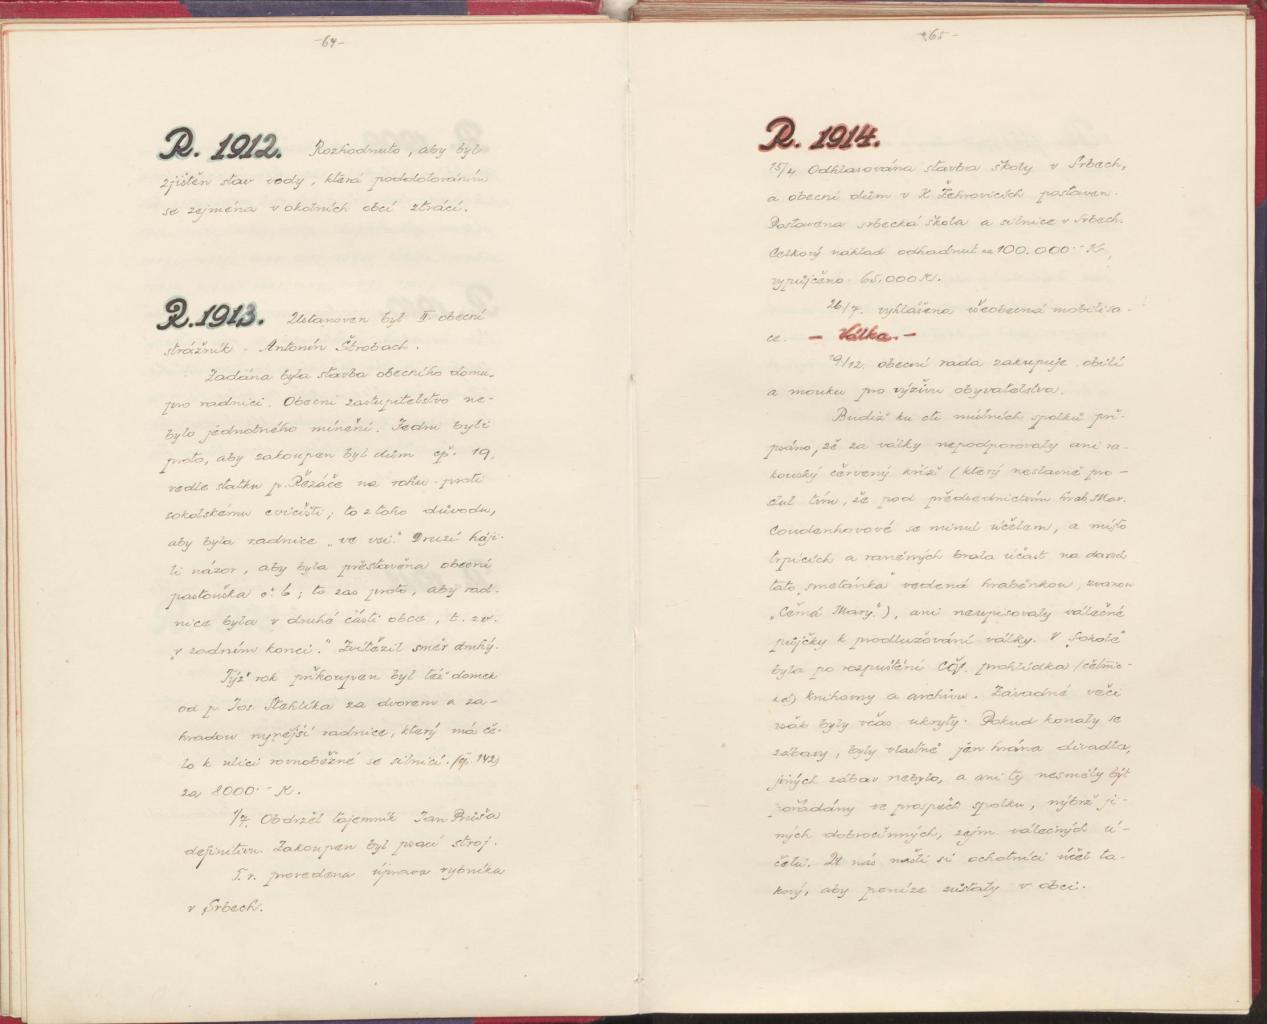 -64-
R. 1912. Rozhodnuto, aby byl
zjištěn stav vody, která poddolováním
se zejména v okolních obcí ztrácí.
R. 1913. Ustanoven byl II. obecní
strážník - Antonín Štrobach.
Zadána byla stavba obecního domu
pro radnici. Obecní zastupitelstvo ne-
bylo jednotného mínění. Jedni byli
proto, aby zakoupen byl dům čp. 19,
vedle statku p. Řezáče na rohu proti
sokolskému cvičišti; to z toho důvodu,
aby byla radnice „ve vsi." Druzí háji-
li názor, aby byla přestavěna obecní
pastouška č. 6; to zas proto, aby rad-
nice byla v druhé části obce, t. zv.
„v zadním konci." Zvítězil směr druhý.
Týž rok přikoupen byl též domek
od p. Jos. Stehlíka za dvorem a za-
hradou nynější radnice, který má če-
lo k ulici rovnoběžné se silnicí. (čp. 142)
za 8000·- K.
1/7. Obdržel tajemník Jan Průša
definitivu. Zakoupen byl psací stroj.
T. r. provedena úprava rybníka
v Srbech.
-65-
R. 1914.
15/4 Odhlasována stavba školy v Srbech,
a obecní dům v K. Žehrovicích postaven.
Postavena srbecká škola a silnice v Srbech.
Celkový náklad odhadnut na 100.000·- K,
vypůjčeno 65.000 K.
26/7. vyhlášena všeobecná mobilisa-
ce. - Válka. -
19/12. obecní rada zakupuje obilí
a mouku pro výživu obyvatelstva.
Budiž ku cti místních spolků při-
psáno, že za války nepodporovaly ani ra-
kouský červený kříž (který neslavně pro-
slul tím, že pod předsednictvím hrab. Mar.
Coudenhovové se minul účelem, a místo
trpících a raněných brala účast na darech
tato „smetánka" vedená hraběnkou, zvanou
„Černá Mary."), ani neupisovaly válečné
půjčky k prodlužování války. V „Sokole"
byla po rozpuštění ČOS. prohlídka (četnic-
ze) knihovny a archivu. Závadné věci
však byly včas ukryty. Pokud konaly se
zábavy, byly vlastně jen hrána divadla,
jiných zábav nebylo, a ani ty nesměly být
pořádány ve prospěch spolku, nýbrž ji-
ných dobročinných, zejm. válečných ú-
čelů. U nás našli si ochotníci účel ta-
kový, aby peníze zůstaly v obci.